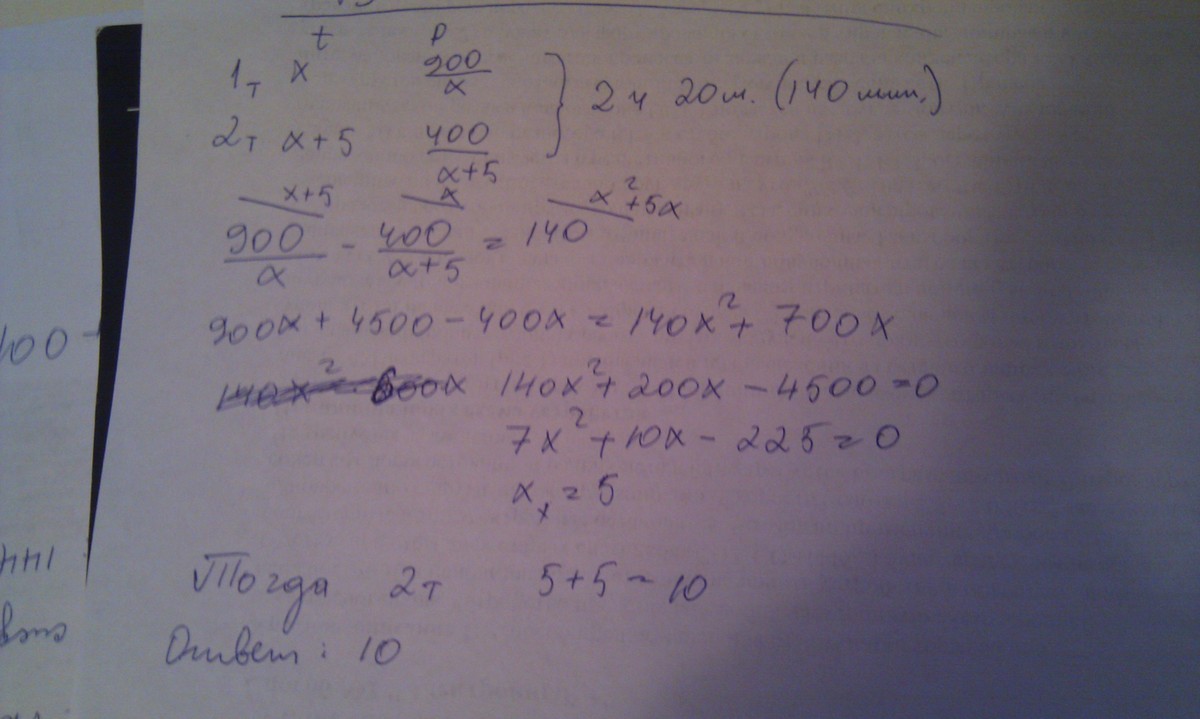 t p
1т x 900/x
2т x+5 400/x+5 } 2 ч 20 м. (140 мин.)
x+5 x x²+5x
900/x - 400/x+5 = 140
900x + 4500 - 400x = 140x² + 700x
140x² + 200x - 4500 = 0
7x² + 10x - 225 = 0
x₁ = 5
Тогда 2т 5+5=10
Ответ: 10
100